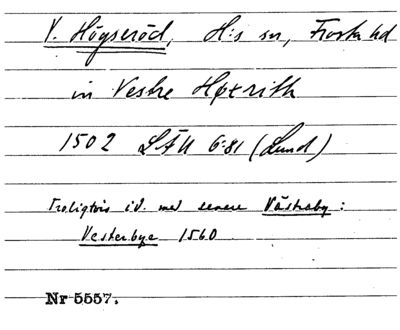 V. Högseröd, H:s sn, Frosta hd
in Vestre Høxrith
1502 LÄU 6:81 (Lund)
Troligtvis id. med senare Västraby:
Vesterbye 1560
Nr 5557.